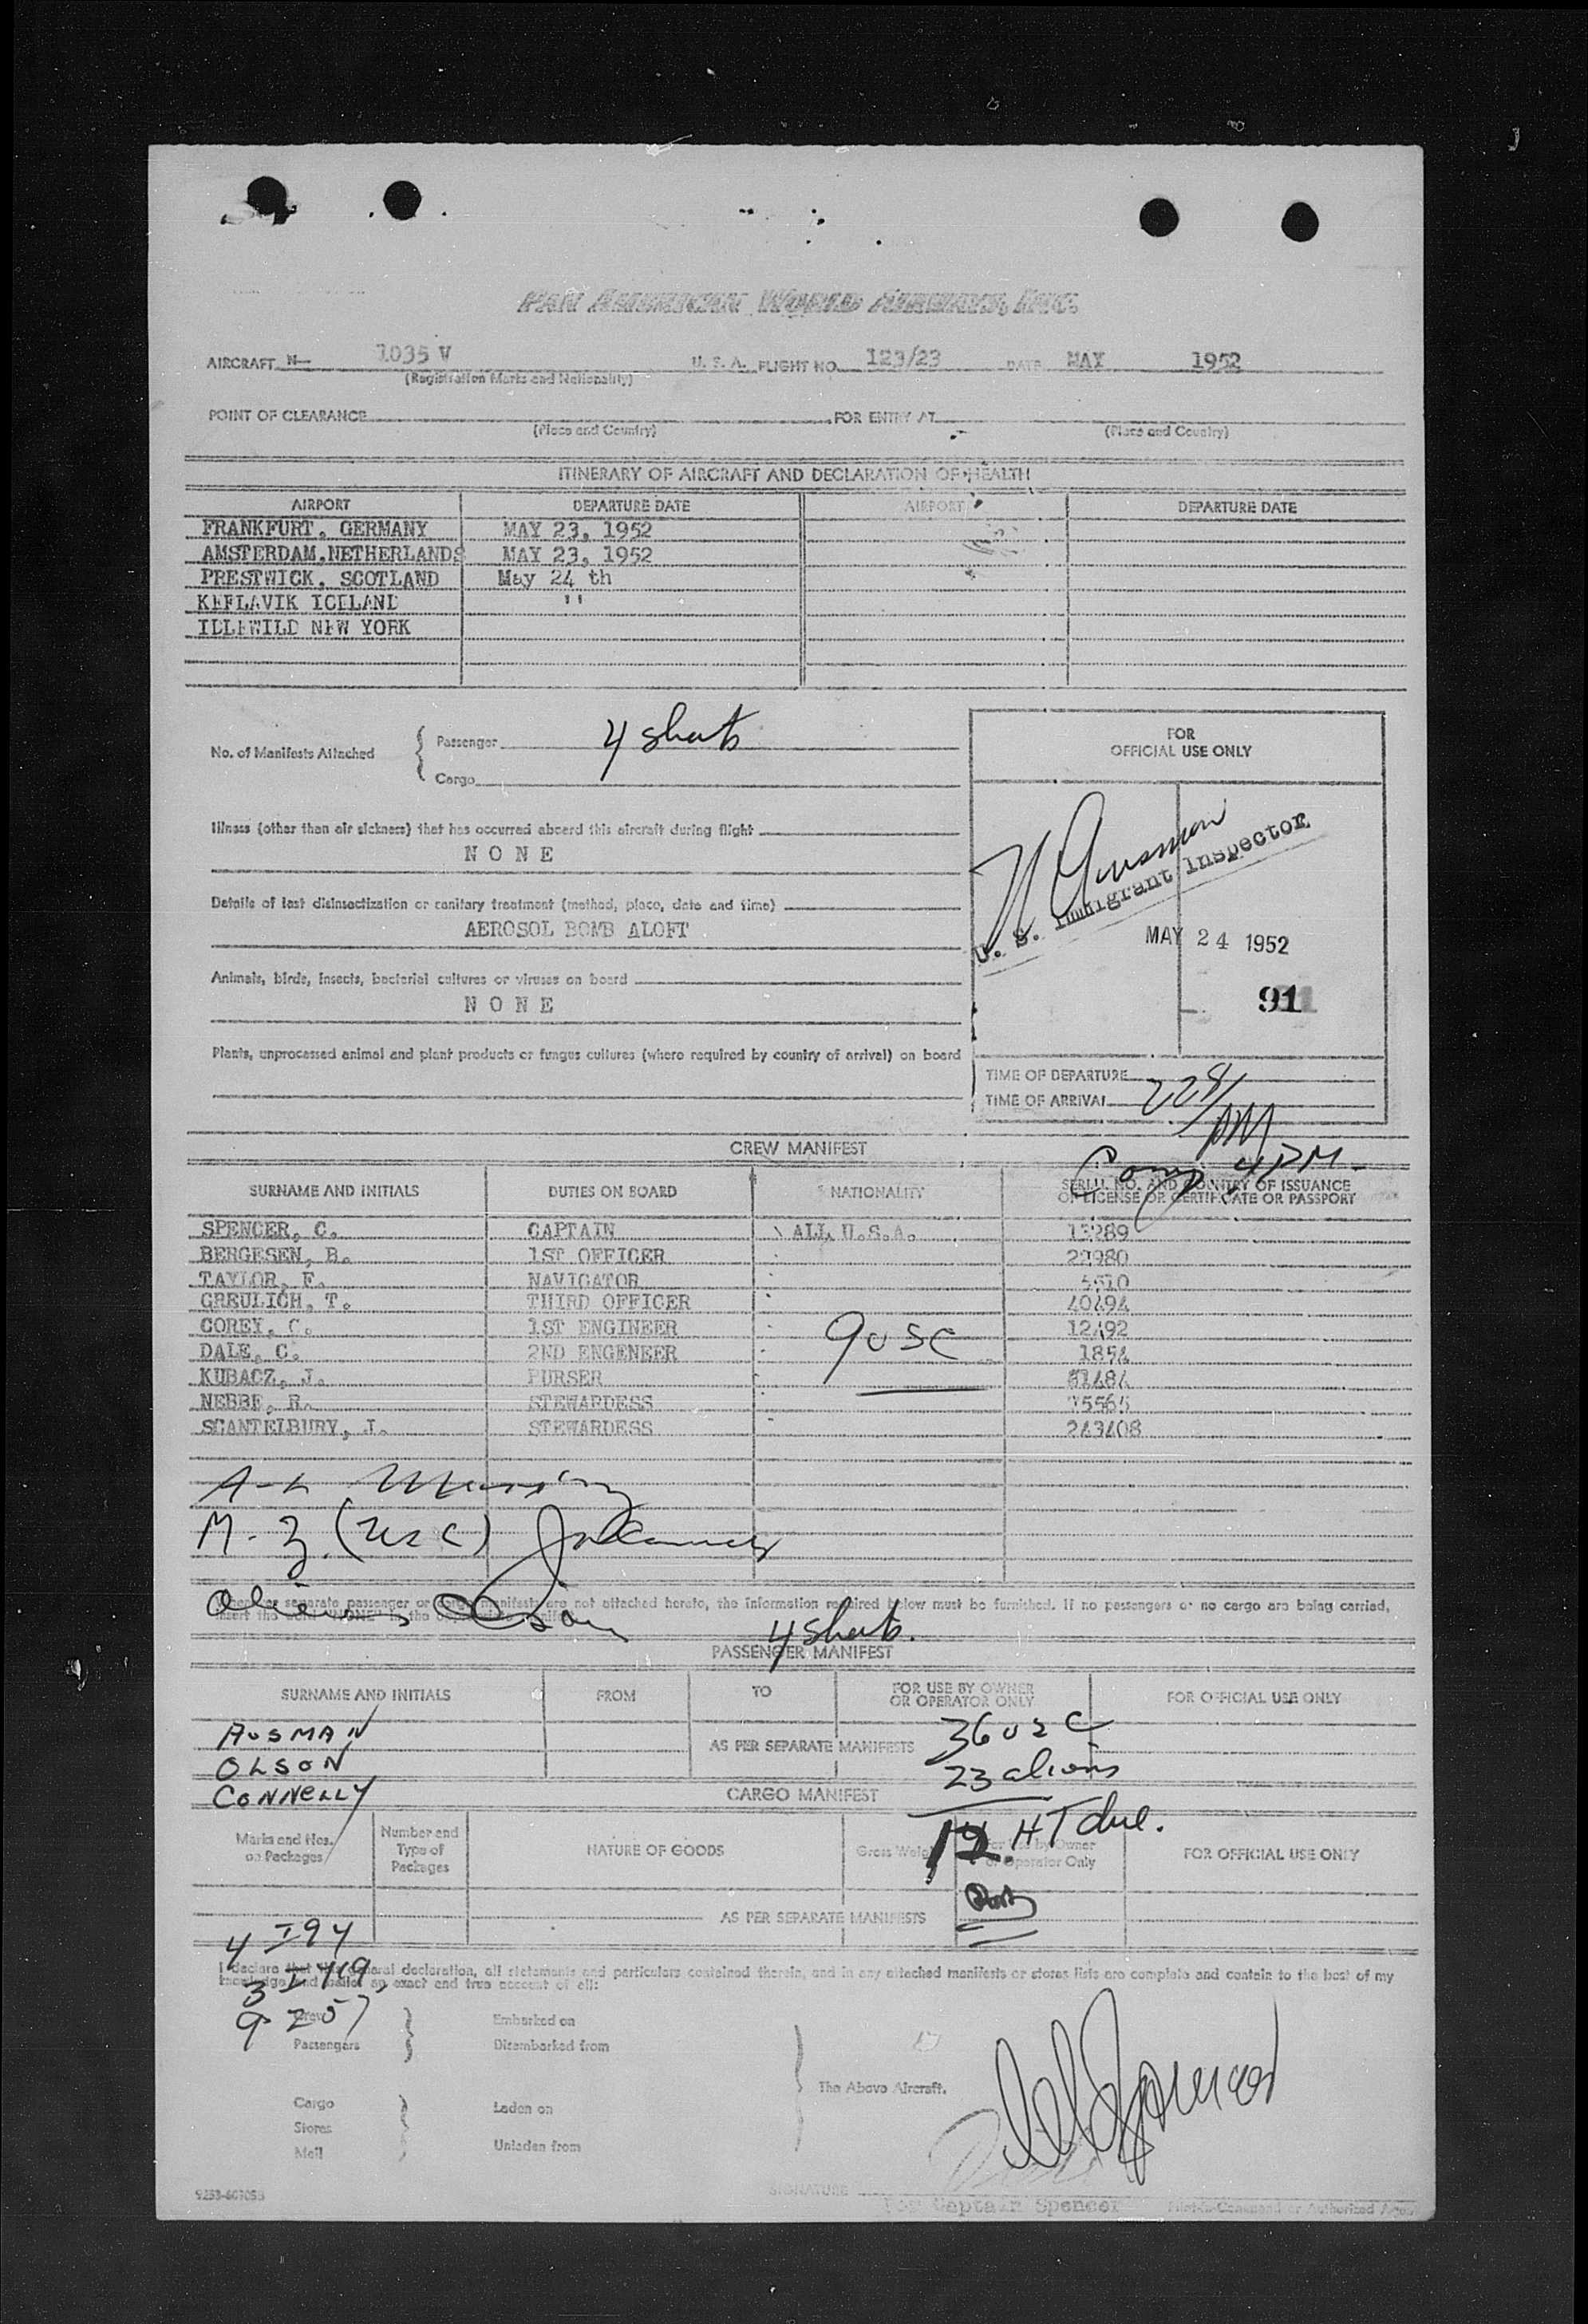 PAN AMERICAN WORLD AIRWAYS, INC.
AIRCRAFT N- 1035 V U. S. A. FLIGHT NO. 123/23 DATE MAY 1952
(Registration Marks and Nationality)
POINT OF CLEARANCE FOR ENTRY AT
(Place and Country) (Place and Country)
ITINERARY OF AIRCRAFT AND DECLARATION OF HEALTH
AIRPORT DEPARTURE DATE AIRPORT DEPARTURE DATE
FRANKFURT, GERMANY MAY 23, 1952
AMSTERDAM, NETHERLANDS MAY 23, 1952
PRESTWICK, SCOTLAND May 24 th
KEFLAVIK ICELAND "
IDLEWILD NEW YORK
No. of Manifests Attached { Passenger 4 sheets
Cargo
FOR
OFFICIAL USE ONLY
Illness (other than air sickness) that has occurred aboard this aircraft during flight
N O N E
Details of last disinsectization or sanitary treatment (method, place, date and time)
AEROSOL BOMB ALOFT
U. S. Immigrant Inspector
MAY 24 1952
Animals, birds, insects, bacterial cultures or viruses on board
N O N E
91
Plants, unprocessed animal and plant products or fungus cultures (where required by country of arrival) on board
TIME OF DEPARTURE
TIME OF ARRIVAL 228/
PM
4 PM-
CREW MANIFEST
SURNAME AND INITIALS DUTIES ON BOARD NATIONALITY SERIAL NO. AND COUNTRY OF ISSUANCE
OF LICENSE OR CERTIFICATE OR PASSPORT
SPENCER, C. CAPTAIN ALL U.S.A. 13289
BERGESEN, B. 1ST OFFICER
TAYLOR, F. NAVIGATOR
GREULICH, T. THIRD OFFICER 40494
COREY, C. 1ST ENGINEER 12492
DALE, C. 2ND ENGENEER 1854
KUBACZ, J. PURSER
NEBBE, R. STEWARDESS
SCANTELBURY, J. STEWARDESS 243408
9 USC
M-Z (USC)
Aliens Olson
Whenever separate passenger or cargo manifests are not attached hereto, the information required below must be furnished. If no passengers or no cargo are being carried,
insert the word "NONE" in the
4 sheets.
PASSENGER MANIFEST
SURNAME AND INITIALS FROM TO FOR USE BY OWNER
OR OPERATOR ONLY FOR OFFICIAL USE ONLY
AUSMAN
OLSON
CONNELLY
AS PER SEPARATE MANIFESTS
36 USC
23 aliens
CARGO MANIFEST
12 HT due.
Marks and Nos.
on Packages Number and
Type of
Packages NATURE OF GOODS Gross Weight For Use by Owner
or Operator Only FOR OFFICIAL USE ONLY
AS PER SEPARATE MANIFESTS
4 I94
3 I419
9 257
I declare that this general declaration, all statements and particulars contained therein, and in any attached manifests or stores lists are complete and contain to the best of my
knowledge and belief an exact and true account of all:
Crew
Passengers
Embarked on
Disembarked from
Cargo
Stores
Mail
Laden on
Unladen from
The Above Aircraft.
SIGNATURE For Captain Spencer Pilot-in-Command or Authorized Agent